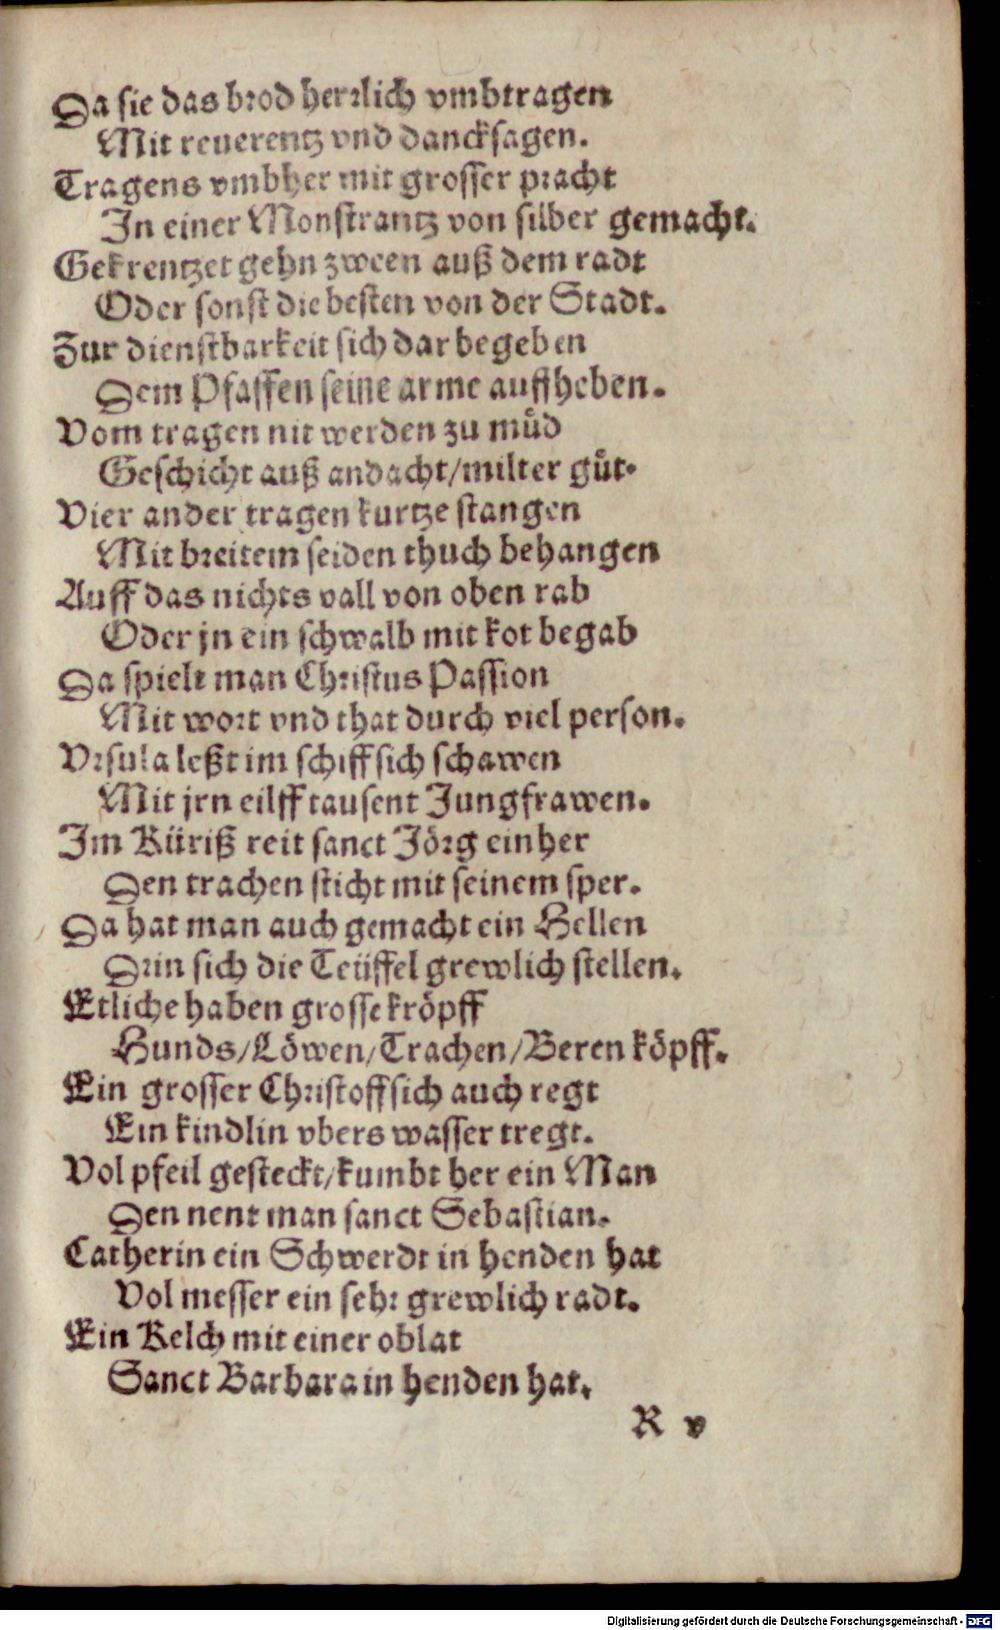 Da sie das brod herrlich vmbtragen
Mit reuerentz vnd dancksagen.
Tragens vmbher mit grosser pracht
In einer Monstrantz von silber gemacht.
Gekrentzet gehn zween auß dem radt
Oder sonst die besten von der Stadt.
Zur dienstbarkeit sich dar begeben
Dem Pfaffen seine arme auffheben.
Vom tragen nit werden zu muͤd
Geschicht auß andacht/milter guͤt.
Vier ander tragen kurtze stangen
Mit breitem seiden thuch behangen
Auff das nichts vall von oben rab
Oder jn ein schwalb mit kot begab
Da spielt man Christus Passion
Mit wort vnd that durch viel person.
Vrsula leßt im schiff sich schawen
Mit jrn eilff tausent Jungfrawen.
Im Küriß reit sanct Jörg einher
Den trachen sticht mit seinem sper.
Da hat man auch gemacht ein Hellen
Drin sich die Teüffel grewlich stellen.
Etliche haben grosse kröpff
Hunds/Löwen/Trachen/Beren köpff.
Ein grosser Christoff sich auch regt
Ein kindlin vbers wasser tregt.
Vol pfeil gesteckt/kumbt her ein Man
Den nent man sanct Sebastian.
Catherin ein Schwerdt in henden hat
Vol messer ein sehr grewlich radt.
Ein Kelch mit einer oblat
Sanct Barbara in henden hat.
R v
Digitalisierung gefördert durch die Deutsche Forschungsgemeinschaft - DFG